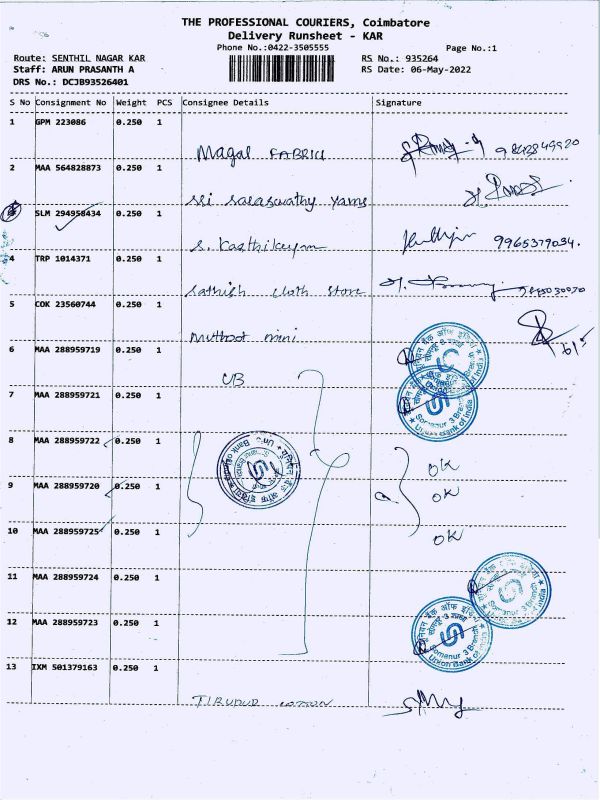 THE PROFESSIONAL COURIERS, Coimbatore
Delivery Runsheet - KAR
Phone No.:0422-3505555
Page No.:1
Route: SENTHIL NAGAR KAR
RS No.: 935264
Staff: ARUN PRASANTH A
RS Date: 06-May-2022
DRS No.: DCJB93526401
S No Consignment No Weight PCS Consignee Details Signature
1 GPM 223086 0.250 1
Magal FABRICS
2 MAA 564828873 0.250 1
Sri Saraswathy Yarns
SLM 294958434 0.250 1
S. Karthikeyan 9965379034.
4 TRP 1014371 0.250 1
Sathish cloth store
5 COK 23560744 0.250 1
Muthoot mini
6 MAA 288959719 0.250 1
UB
7 MAA 288959721 0.250 1
Somanur 3 Branch
Union Bank of India
8 MAA 288959722 0.250 1
OK
9 MAA 288959720 0.250 1
OK
10 MAA 288959725 0.250 1
OK
11 MAA 288959724 0.250 1
12 MAA 288959723 0.250 1
Somanur 3 Branch
Union Bank of India
13 IXM 501379163 0.250 1
TIRUPUR COTTON